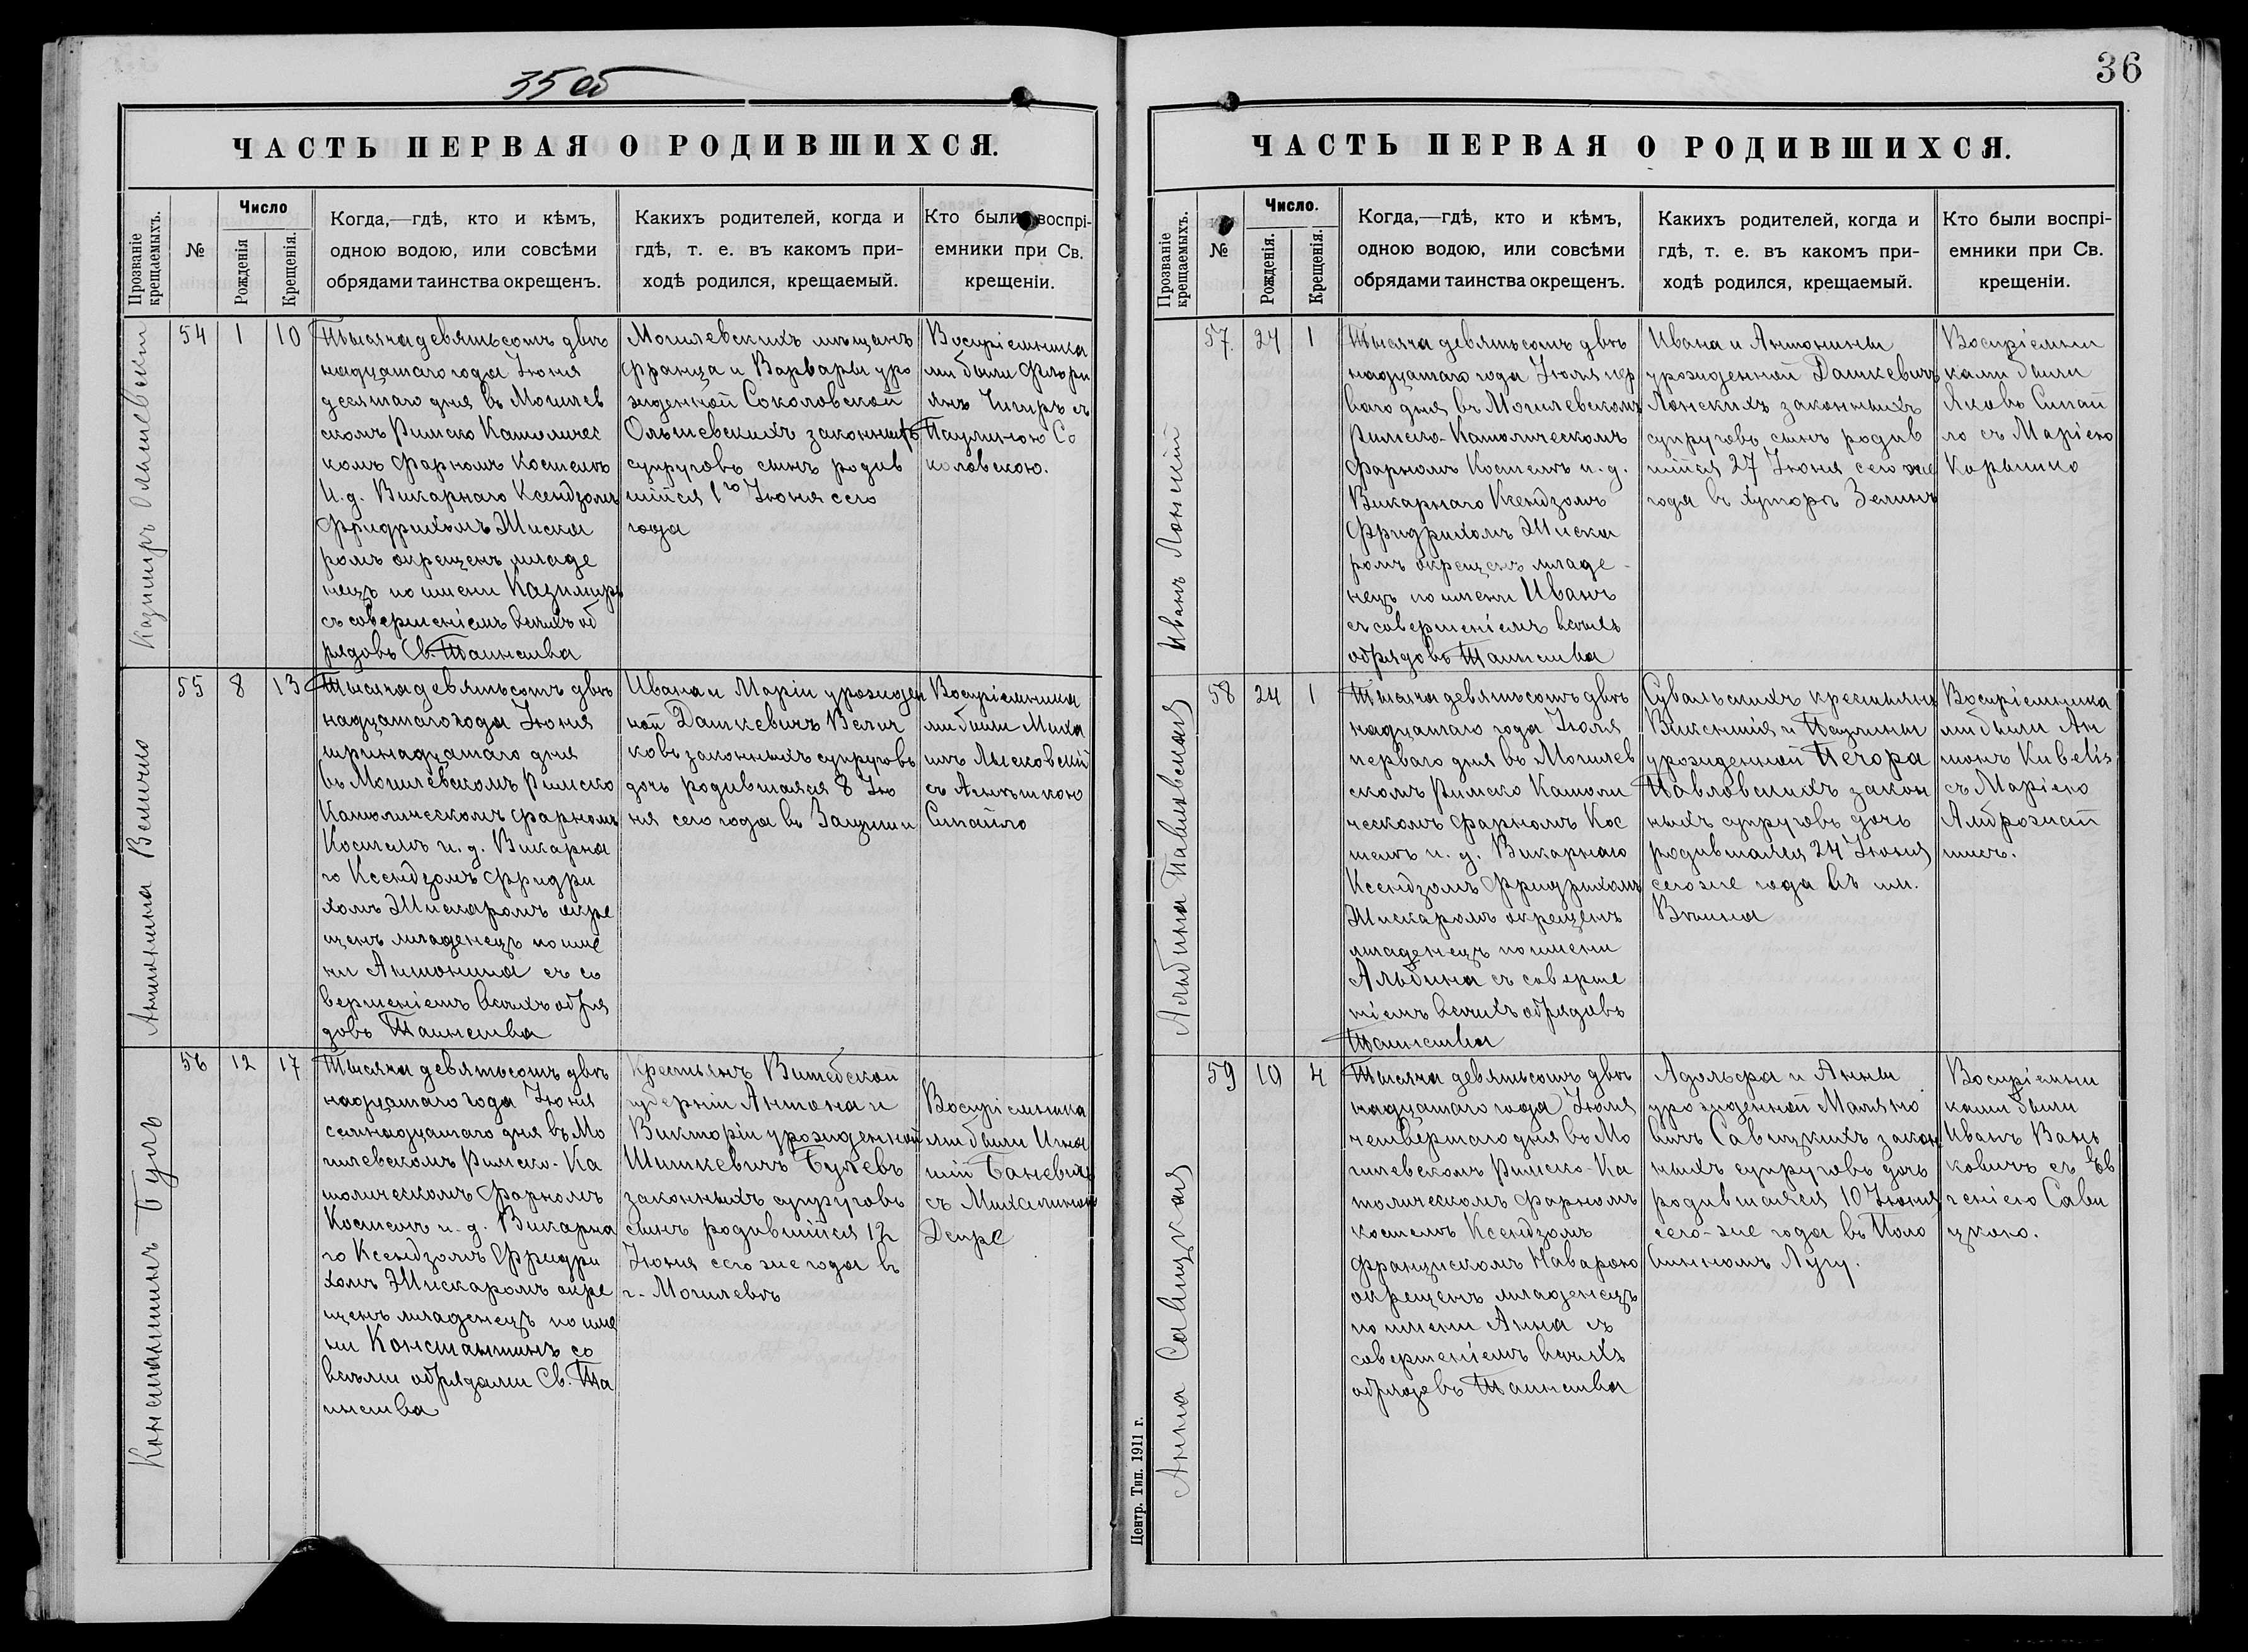 35 об
ЧАСТЬ ПЕРВАЯ О РОДИВШИХСЯ.
Прозваніе крещаемыхъ.
№
Число
Рожденія
Крещенія.
Когда,—гдѣ, кто и кѣмъ,
одною водою, или совсѣми
обрядами таинства окрещенъ.
Какихъ родителей, когда и
гдѣ, т. е. въ какомъ при-
ходѣ родился, крещаемый.
Кто были воспрі-
емники при Св.
крещеніи.
Казимиръ
54
1
10
Тысяча девятьсотъ двѣ
надцатаго года Іюня
десятаго дня въ Могилев
скомъ Римско Католичес
комъ Фарномъ Костелѣ
И. д. Викарнаго Ксендзомъ
Фридрихомъ Миска
ромъ окрещенъ младе
нецъ по имени Казимиръ
съ совершеніемъ всѣхъ об
рядовъ Св. Таинства
Могилевскихъ мѣщанъ
Франца и Варвары уро
жденной Соколовской
Ольшевскихъ законныхъ
супруговъ сынъ родив
шійся 1го Іюня сего
года
Воспріемника
ми были Флорі
янъ Чигирь съ
Паулиною Со
коловскою.
Антонина Величко
55
8
13
Тысяча девятьсотъ двѣ
надцатаго года Іюня
тринадцатаго дня
въ Могилевскомъ Римско
Католическомъ Фарномъ
Костелѣ и. д. Викарна
го Ксендзомъ Фридри
хомъ Мискаромъ окре
щенъ младенецъ по име
ни Антонина съ со
вершеніемъ всѣхъ обря
довъ Таинства
Ивана и Маріи урожден
ной Дашкевичъ Велич
ковъ законныхъ супруговъ
дочь родившаяся 8 Ію
ня сего года въ
Воспріемника
ми были Миха
илъ Лысковскій
съ
Стайло
Константинъ Буль
56
12
17
Тысяча девятьсотъ двѣ
надцатаго года Іюня
семнадцатаго дня въ Мо
гилевскомъ Римско-Ка
толическомъ Фарномъ
Костелѣ и. д. Викарна
го Ксендзомъ Фридри
хомъ Мискаромъ окре
щенъ младенецъ по име
ни Константинъ со
всѣми обрядами Св. Та
инства
Крестьянъ Витебской
губерніи Антона и
Викторіи урожденной
Шишкевичъ Булевъ
законныхъ супруговъ
сынъ родившійся 12
Іюня сего же года въ
г. Могилевѣ
Воспріемника
ми были Игна
тій Баневичъ
съ Михалиною
36
ЧАСТЬ ПЕРВАЯ О РОДИВШИХСЯ.
Прозваніе крещаемыхъ.
№
Число.
Рожденія.
Крещенія.
Когда,—гдѣ, кто и кѣмъ,
одною водою, или совсѣми
обрядами таинства окрещенъ.
Какихъ родителей, когда и
гдѣ, т. е. въ какомъ при-
ходѣ родился, крещаемый.
Кто были воспрі-
емники при Св.
крещеніи.
Иванъ Лонскій
57.
24
1
Тысяча девятьсотъ двѣ
надцатаго года Іюля пер
ваго дня въ Могилевскомъ
Римско-Католическомъ
Фарномъ Костелѣ и. д.
Викарнаго Ксендзомъ
Фридрихомъ Миска
ромъ окрещенъ младе-
нецъ по имени Иванъ
съ совершеніемъ всѣхъ
обрядовъ Таинства
Ивана и Антонины
урожденной Дашкевичъ
Лонскихъ законныхъ
супруговъ сынъ родив
шійся 27 Іюня сего же
года въ хуторѣ
Воспріемни
ками были
Яковъ Стай
ло съ Маріею
Альбина Павловская
58
24
1
Тысяча девятьсотъ двѣ
надцатаго года Іюля
перваго дня въ Могилев
скомъ Римско Католи
ческомъ Фарномъ Кос
телѣ и. д. Викарнаго
Ксендзомъ Фридрихомъ
Мискаромъ окрещенъ
младенецъ по имени
Альбина съ соверше
ніемъ всѣхъ обрядовъ
Таинства
Сувальскихъ крестьянъ
и Паулины
урожденной Печора
Павловскихъ закон
ныхъ супруговъ дочь
родившаяся 24 Іюня
сего же года въ им.
Воспріемника
ми были Ан
тонъ
съ Маріею
Анна Савицкая
59
10
4
Тысяча девятьсотъ двѣ
надцатаго года Іюля
четвертаго дня въ Мо
гилевскомъ Римско-Ка
толическомъ Фарномъ
костелѣ Ксендзомъ
Францискомъ Наварою
окрещенъ младенецъ
по имени Анна съ
совершеніемъ всѣхъ
обрядовъ Таинства
Адольфа и Анны
урожденной Маляно
вичъ Савицкихъ закон
ныхъ супруговъ дочь
родившаяся 10 Іюня
сего-же года въ
Лугу.
Воспріемни
ками были
Иванъ Вань
ковичъ съ Ев
геніею Сави
цкою.
Центр. Тип. 1911 г.